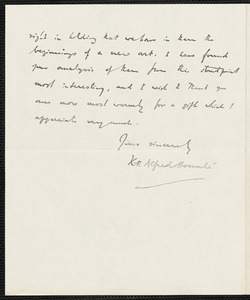 right in holding that we have in them the
beginnings of a new art. I have found
your analysis of them from this standpoint
most interesting, and I wish to thank you
once more most warmly for a gift which I
appreciate very much.
Yours sincerely
Alfred